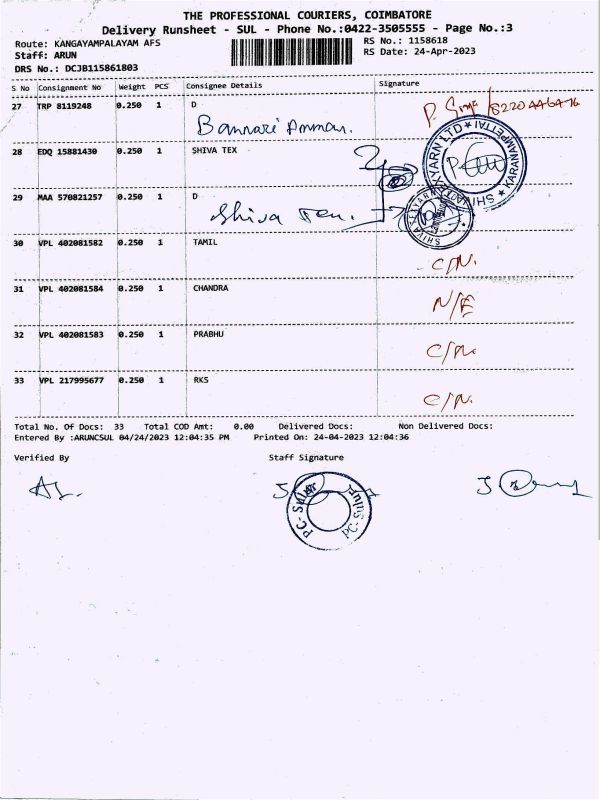 THE PROFESSIONAL COURIERS, COIMBATORE
Delivery Runsheet - SUL - Phone No.:0422-3505555 - Page No.:3
Route: KANGAYAMPALAYAM AFS
RS No.: 1158618
Staff: ARUN
RS Date: 24-Apr-2023
DRS No.: DCJB115861803
S No Consignment No Weight PCS Consignee Details Signature
27 TRP 8119248 0.250 1 D
Bannari Amman.
28 EDQ 15881430 0.250 1 SHIVA TEX
SHIVA TEXYARN LTD ★ KARANAMPETTAI ★
29 MAA 570821257 0.250 1 D
Shiva Tex.
30 VPL 402081582 0.250 1 TAMIL
C/N.
31 VPL 402081584 0.250 1 CHANDRA
N/E
32 VPL 402081583 0.250 1 PRABHU
C/N.
33 VPL 217995677 0.250 1 RKS
C/N.
Total No. Of Docs: 33 Total COD Amt: 0.00 Delivered Docs: Non Delivered Docs:
Entered By :ARUNCSUL 04/24/2023 12:04:35 PM Printed On: 24-04-2023 12:04:36
Verified By Staff Signature
PC-Sulur PC-Sulur